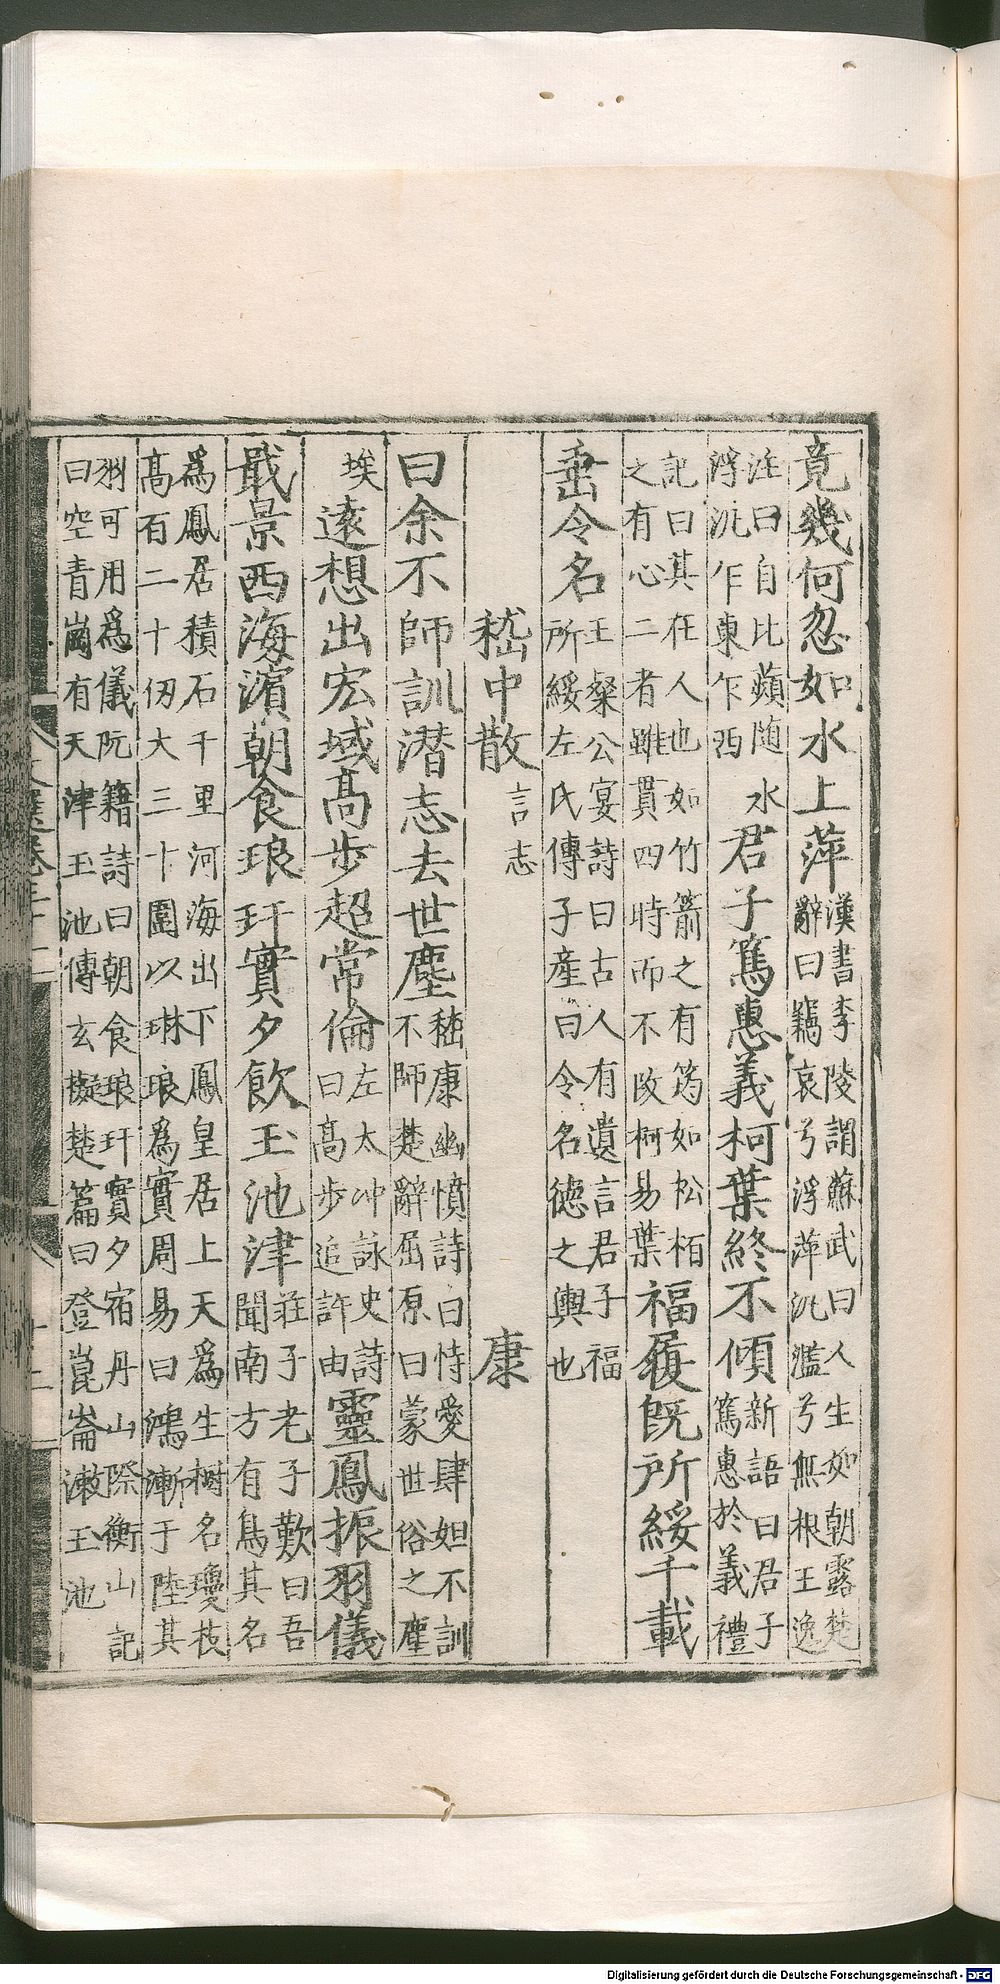 竟幾何忽如水上萍漢書李陵謂蘇武曰人生如朝露楚辭曰竊哀兮浮萍汎濫兮無根王逸
注曰自比蘋隨水浮汎乍東乍西君子篤惠義柯葉終不傾新語曰君子篤惠於義禮
記曰其在人也如竹箭之有筠如松栢之有心二者雖貫四時而不改柯易葉福履既所綏千載
垂令名王粲公宴詩曰古人有遺言君子福所綏左氏傳子産曰令名德之輿也
嵇中散言志 康
曰余不師訓潜志去世塵嵇康幽憤詩曰恃愛肆妲不訓不師楚辭屈原曰蒙世俗之塵
埃遠想出宏域髙步超常倫左太冲詠史詩曰髙步追許由靈鳳振羽儀
戢景西海濵朝食琅玕實夕飲玉池津莊子老子歎曰吾聞南方有鳥其名
爲鳳居積石千里河海出下鳳皇居上天爲生樹名瓊枝髙百二十仞大三十圍以琳琅爲實周易曰鴻漸于陸其
羽可用爲儀阮籍詩曰朝食琅玕實夕宿丹山際衡山記曰空青崗有天津玉池傅玄擬楚篇曰登崑崙漱玉池
Digitalisierung gefördert durch die Deutsche Forschungsgemeinschaft - DFG